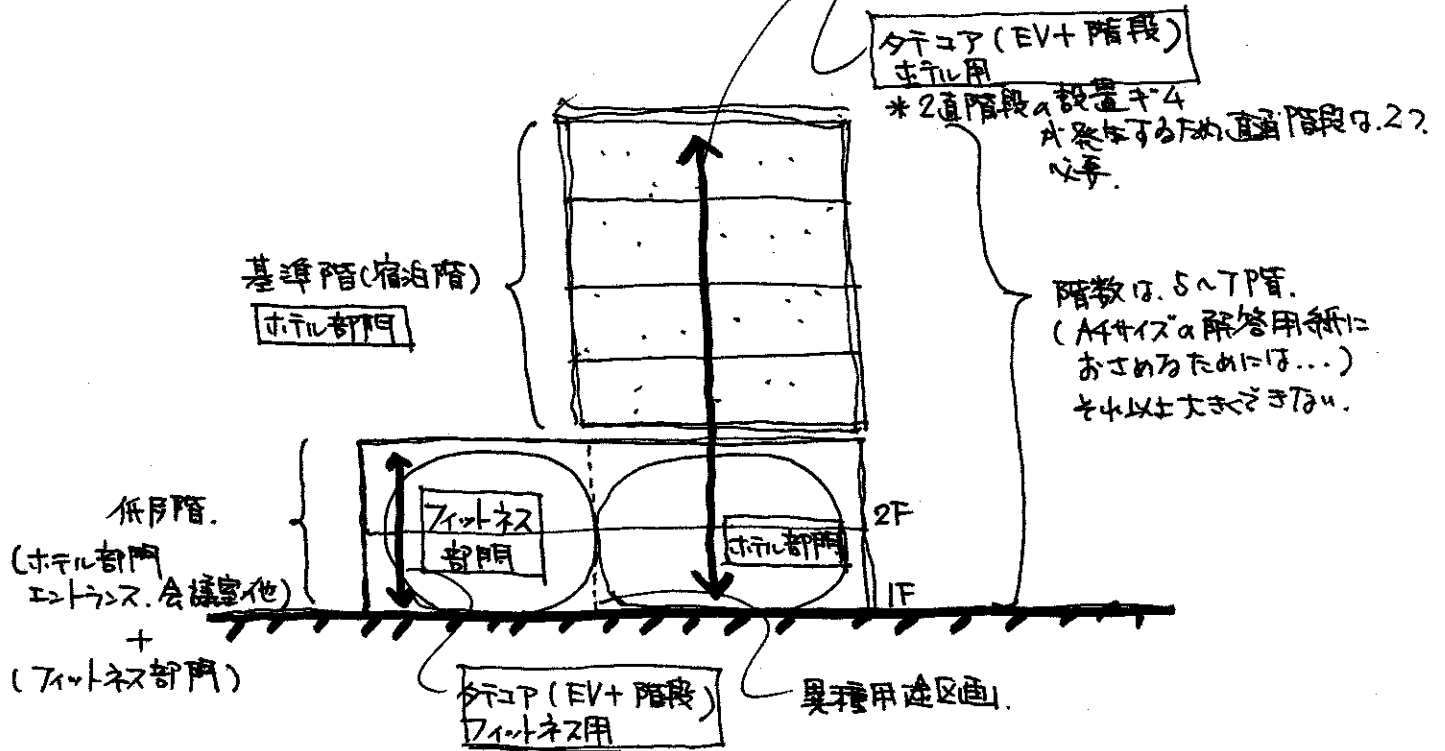 タテコア(EV+階段)
ホテル用
*2直階段の設置ギム
が発生するため直通階段は、2つ
必要.
基準階(宿泊階)
ホテル部門
階数は、5〜7階.
(A4サイズの解答用紙に
おさめるためには...)
それ以上大きくできない.
低層階.
(ホテル部門
エントランス、会議室他)
+
(フィットネス部門)
フィットネス
部門
ホテル部門
2F
1F
タテコア(EV+階段)
フィットネス用
異種用途区画.